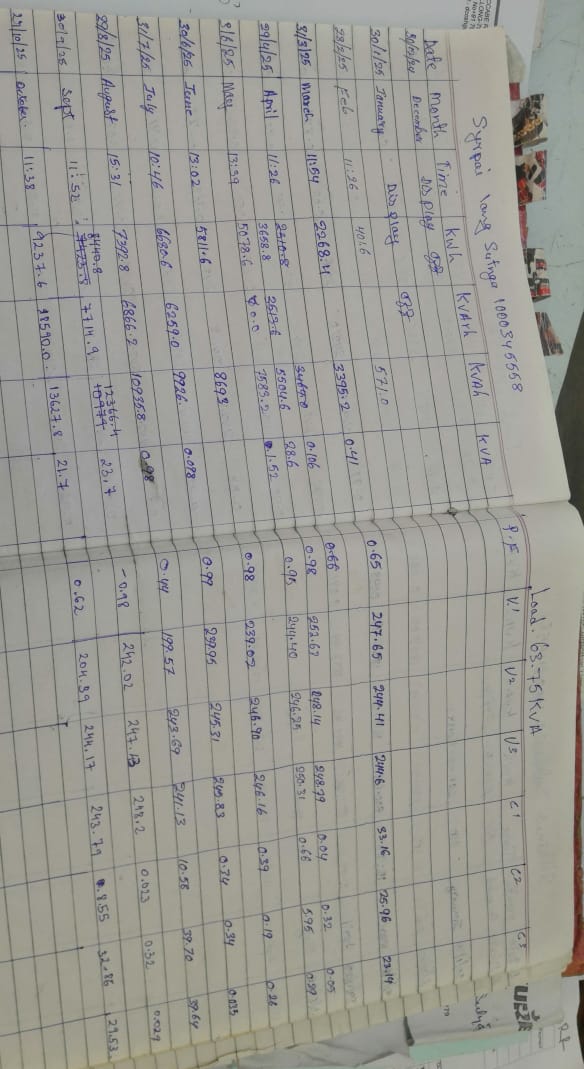 Sympai lang Sutnga 1000345558
Load. 63.75 KVA
Date Month Time KWh KVArh KVAh KVA P.F V1 V2 V3 C1 C2 C3
December Display off
30/1/25 January Display off
28/2/25 Feb 11:26 40.6 571.0 0.65 247.65 244.41 244.6 33.16 25.96 23.14
31/3/25 March 11:54 2268.4 3395.2 0.41 0.66
29/4/25 April 11:26 3658.8 3513.6 5504.6 0.106 0.98 252.67 248.14 248.79 0.04 0.32 0.05
May 13:39 5078.6 0.0 7583.2 28.6 0.95 244.40 246.25 250.31 0.66 5.95
30/6/25 June 13:02 5811.6 8693 1.52 0.98 239.02 246.90 246.16 0.39 0.19 0.26
31/7/25 July 10:46 6680.6 6259.0 9926. 0.098 0.99 239.95 245.31 245.83 0.74 0.34 0.035
29/8/25 August 15:31 7392.8 6866.2 10935.8 0.98 0.44 199.57 243.69 241.13 10.58 39.70 39.64
Sept 11:52 8440.8 7714.9 12366.4 23.7 -0.98 242.02 247.13 248.2 0.023 0.32 0.029
October 11:38 9237.6 8590.0 13627.8 21.7 0.62 204.39 244.17 243.79 8.55 32.86 29.53